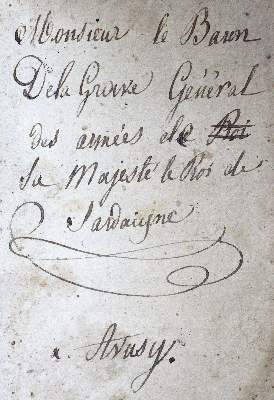 Monsieur le Baron
De la Grave Général
des armées de Roi
Sa Majesté le Roi de
Sardaigne
a Avusy.